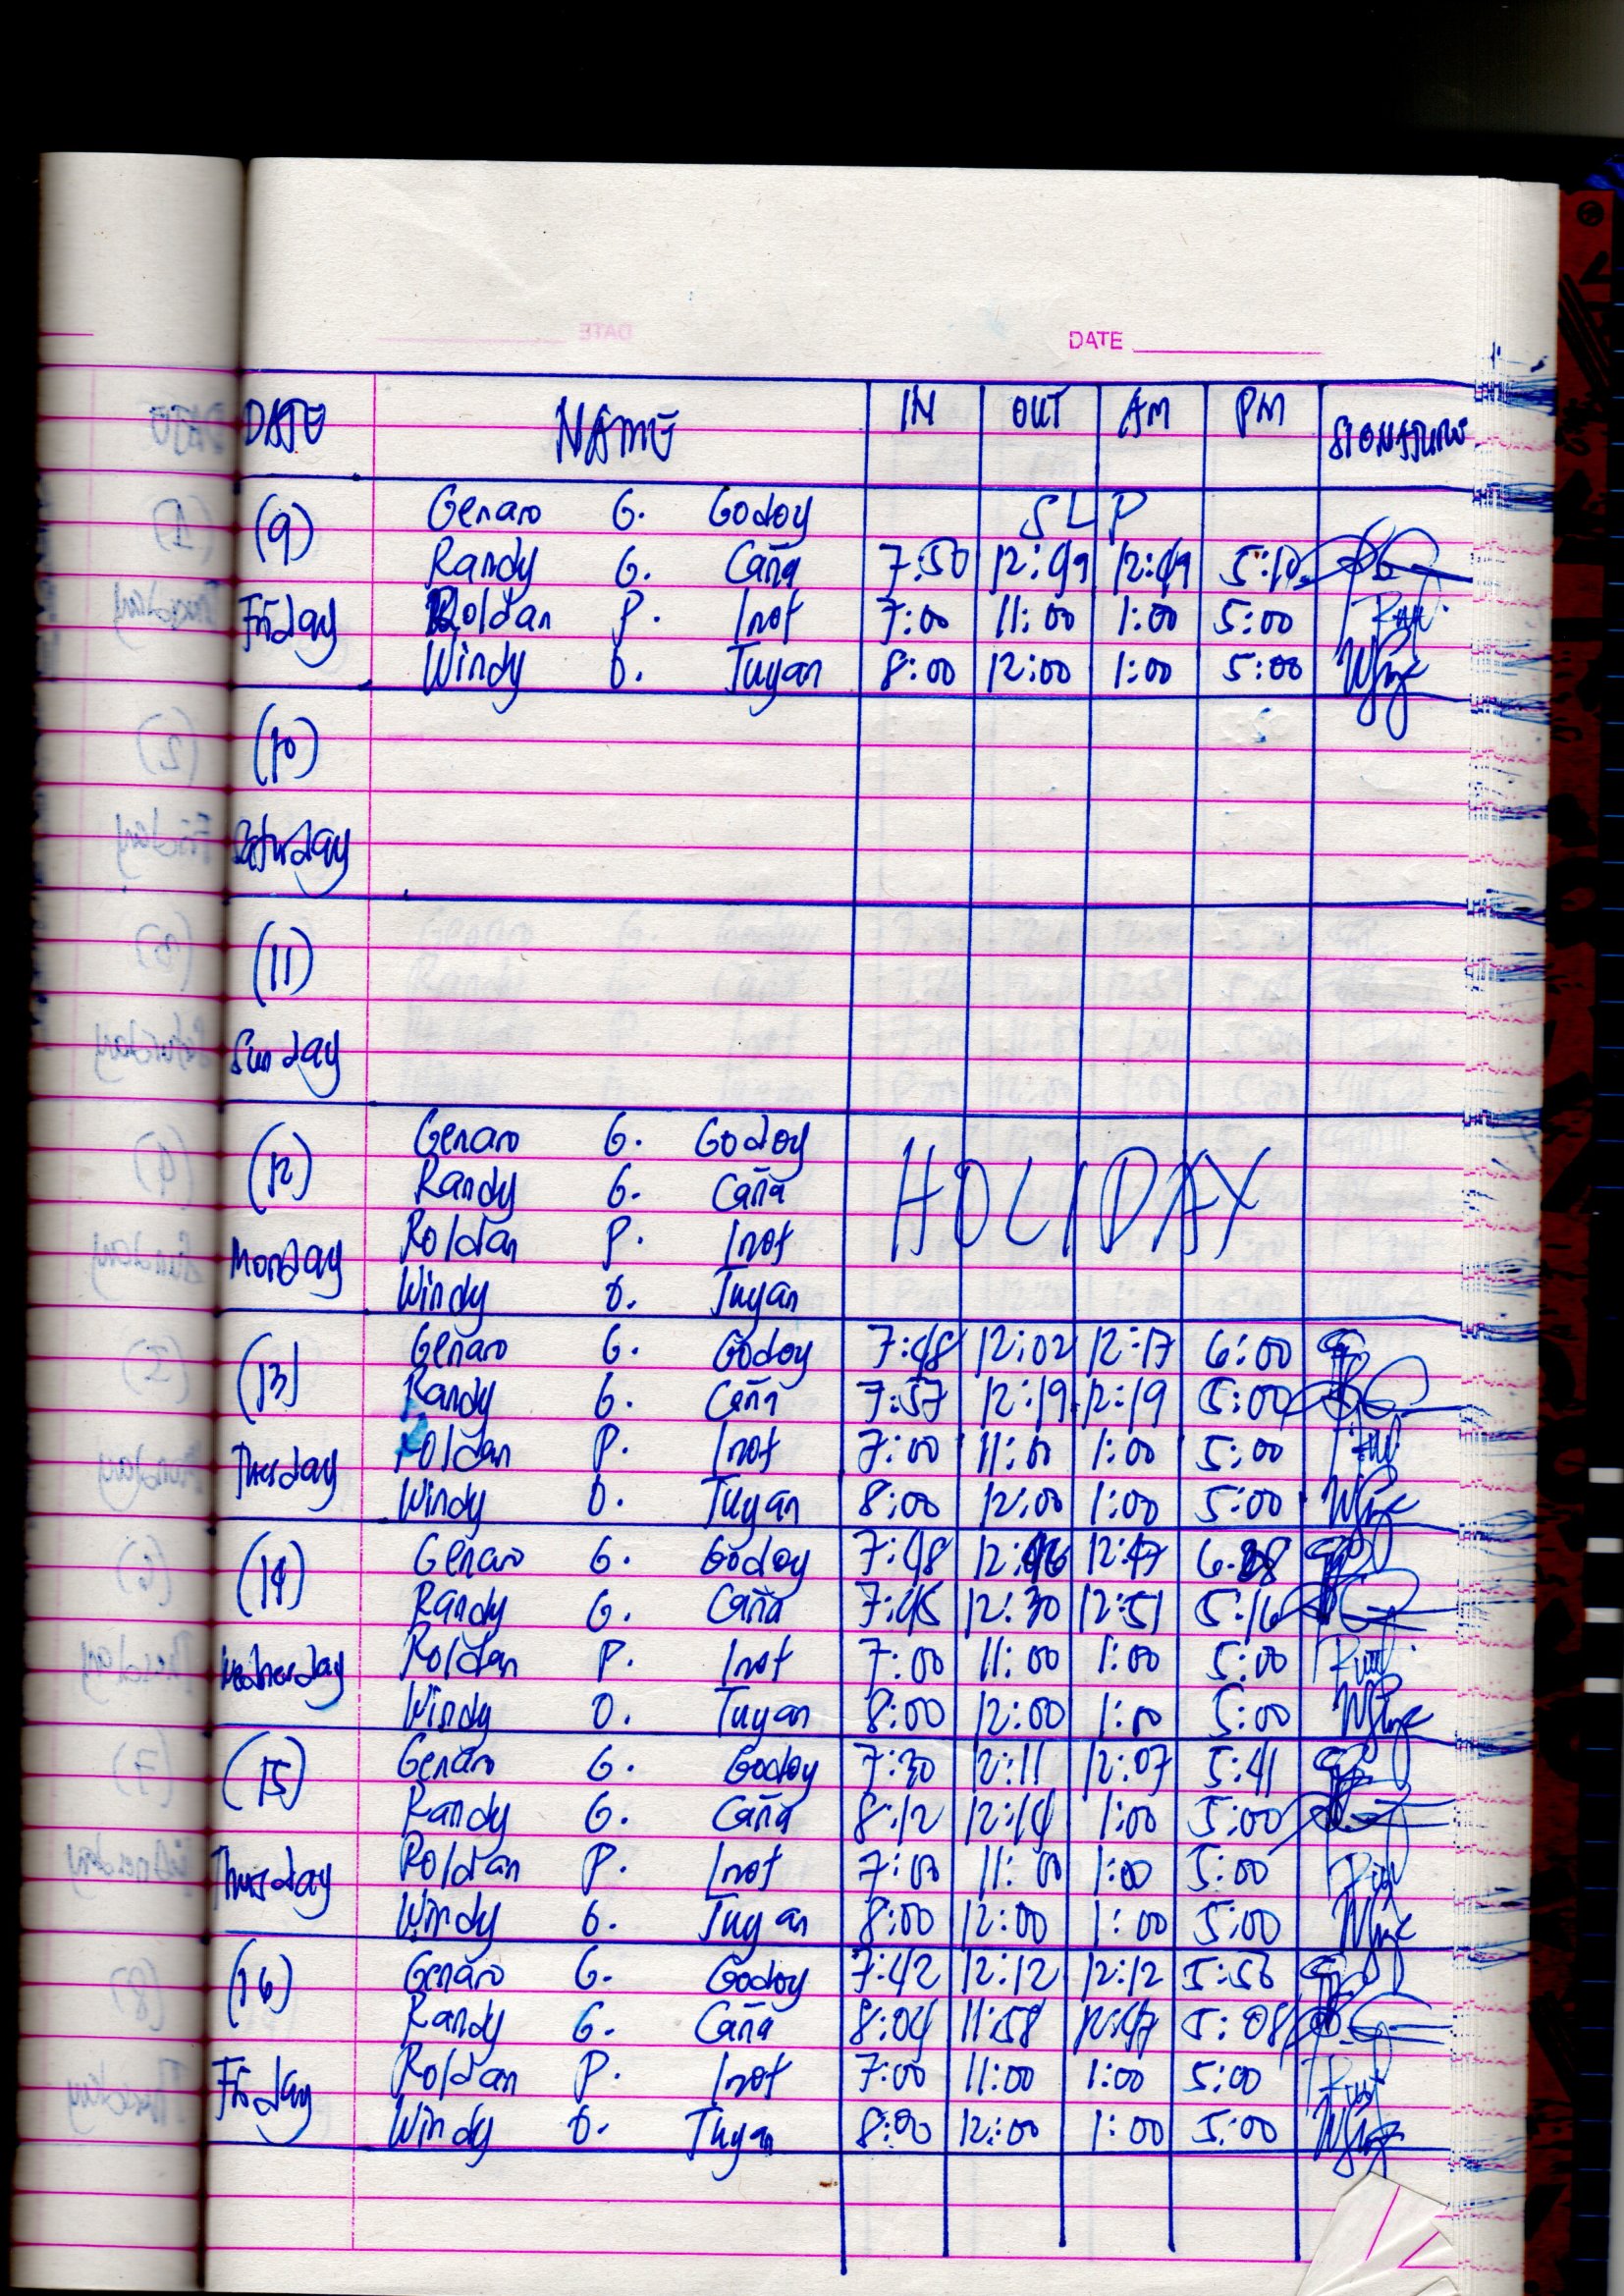 DATE
DATE NAME IN OUT AM PM SIGNATURE
(9) Genaro G. Godoy SLP
Randy G. Caña 7:50 12:49 12:49 5:10
Friday Roldan P. Inot 7:00 11:00 1:00 5:00
Windy O. Tuyan 8:00 12:00 1:00 5:00
(10)
Saturday
(11)
Sunday
(12) Genaro G. Godoy
Randy G. Caña HOLIDAY
Monday Roldan P. Inot
Windy O. Tuyan
(13) Genaro G. Godoy 7:48 12:02 12:17 6:00
Randy G. Caña 7:57 12:19 12:19 5:00
Thesday Roldan P. Inot 7:00 11:00 1:00 5:00
Windy O. Tuyan 8:00 12:00 1:00 5:00
(14) Genaro G. Godoy 7:48 12:47
Randy G. Caña 7:45 12:30 12:51 5:16
Wednesday Roldan P. Inot 7:00 11:00 1:00 5:00
Windy O. Tuyan 8:00 12:00 1:00 5:00
(15) Genaro G. Godoy 7:30 12:11 12:07 5:41
Randy G. Caña 8:12 12:14 1:00 5:00
Thursday Roldan P. Inot 7:00 11:00 1:00 5:00
Windy O. Tuyan 8:00 12:00 1:00 5:00
(16) Genaro G. Godoy 7:42 12:12 12:12 5:56
Randy G. Caña 8:04 11:58 5:08
Friday Roldan P. Inot 7:00 11:00 1:00 5:00
Windy O. Tuyan 8:00 12:00 1:00 5:00